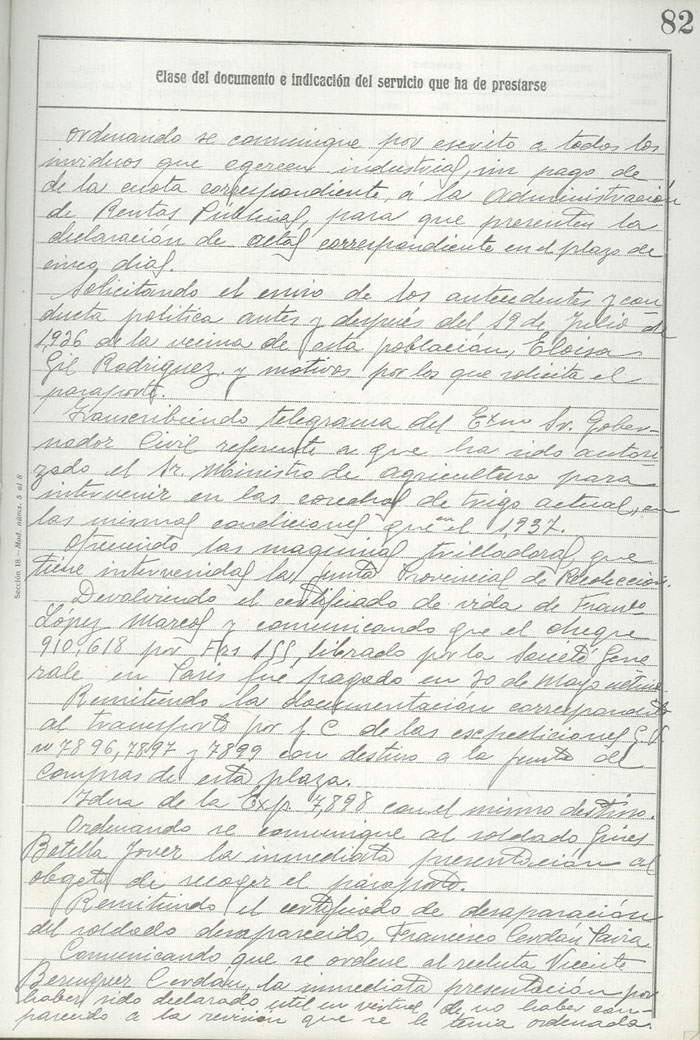 82
Clase del documento e indicación del servicio que ha de prestarse
ordenando se comunique por escrito a todos los
inviduos que egercen industrial, sin pago de
de la cuota correspondiente, á la Administración
de Rentas Públicas, para que presenten la
declaración de altas correspondiente en el plazo de
cinco dias.
Solicitando el envio de los antecedentes y con
ducta politica antes y después del 19 de Julio de
1,936 de la vecina de esta población, Eloisa
Gil Rodriguez. y motivos por los que solicita el
pasaporte.
Transcribiendo telegrama del Exmo Sr. Gober-
nador Civil referente a que ha sido autori
zado el Sr. Ministro de agricultura para
intervenir en las cosechas de trigo actual, en
las mismas condiciones que en el 1,937.
Ofreciendo las maquinas trilladoras, que
tiene intervenidas la Junta Provincial de Recolección.
Devolviendo el certificado de vida de Franco
López Marcos y comunicando que el cheque
910,618 por Frs 155, librado por la Societé Gene
rale en Paris fué pagado en 20 de Mayo
Remitiendo la documentación correspondite
al transporte por f. C. de las expediciones G.V.
nº 7896, 7897 y 7899 con destino a la Junta de
Compras de esta plaza.
Idem de la Exp. 7,898 con el mismo destino.
Ordenando se comunique al soldado Gines
Botella Jover la inmediata presentación al
obgeto de recoger el pasaporte.
Remitiendo el certificado de desaparación
del soldado desaparecido, Francisco Cerdán
Comunicando que se ordene al recluta Vicente
Berenguer Cerdán, la inmediata presentación por
haber sido declarado util en virtud de no haber com-
parecido a la revisión que se le tenia ordenada.
Sección 18.—Mod. núms. 5 al 8